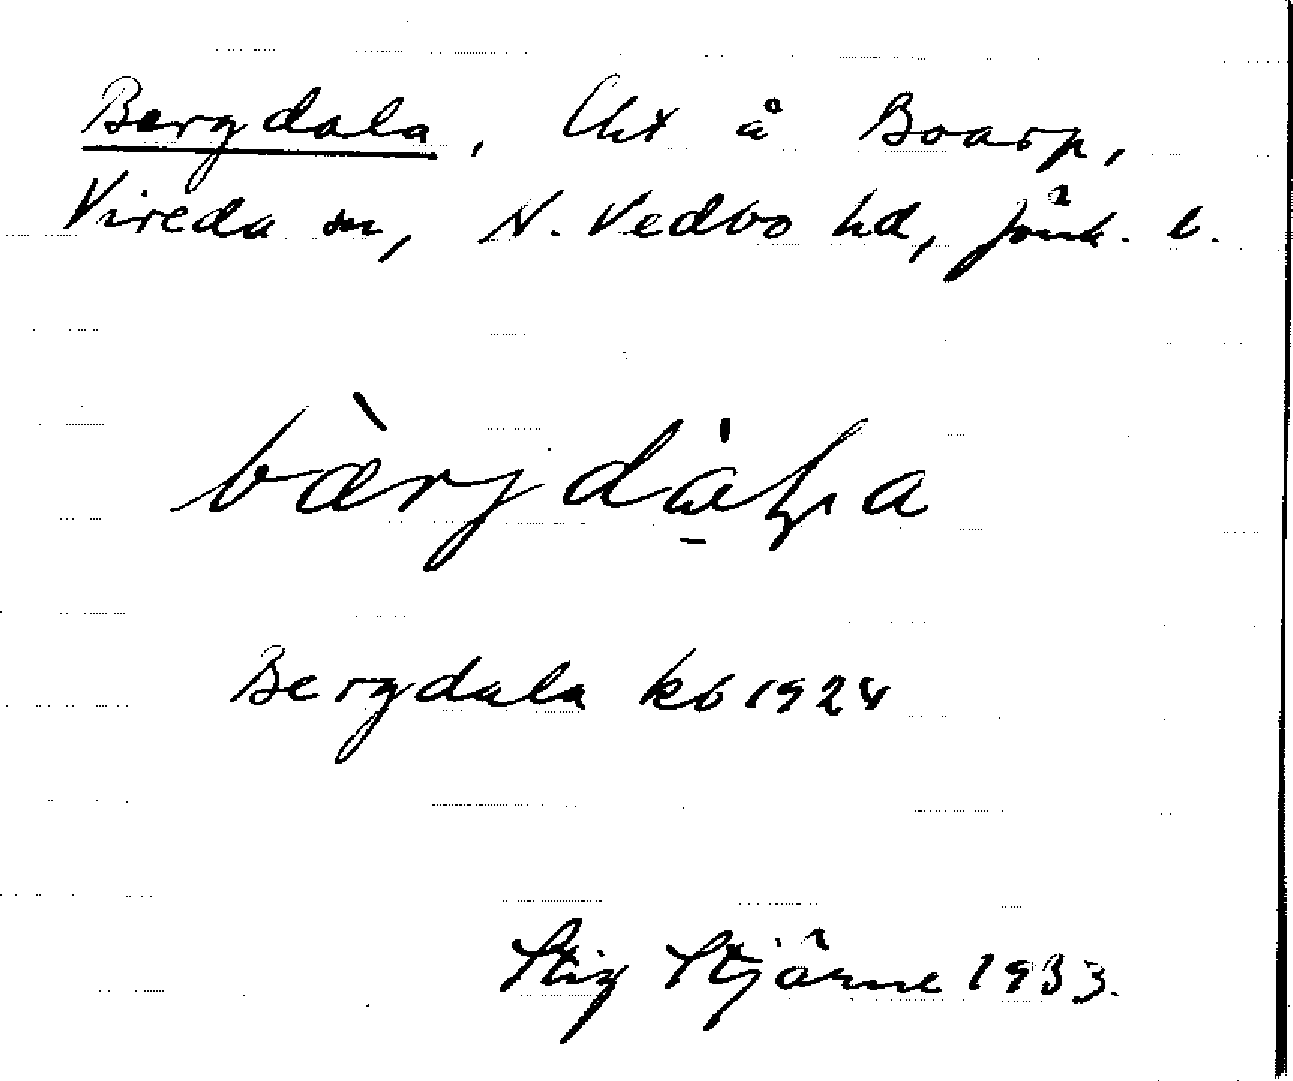 Bergdala, Lht å Boarp,
Vireda sn, N. Vedbo hd, Jönk. l.
bærjda
Bergdala kb 1924
Stig Stjärne 1933.